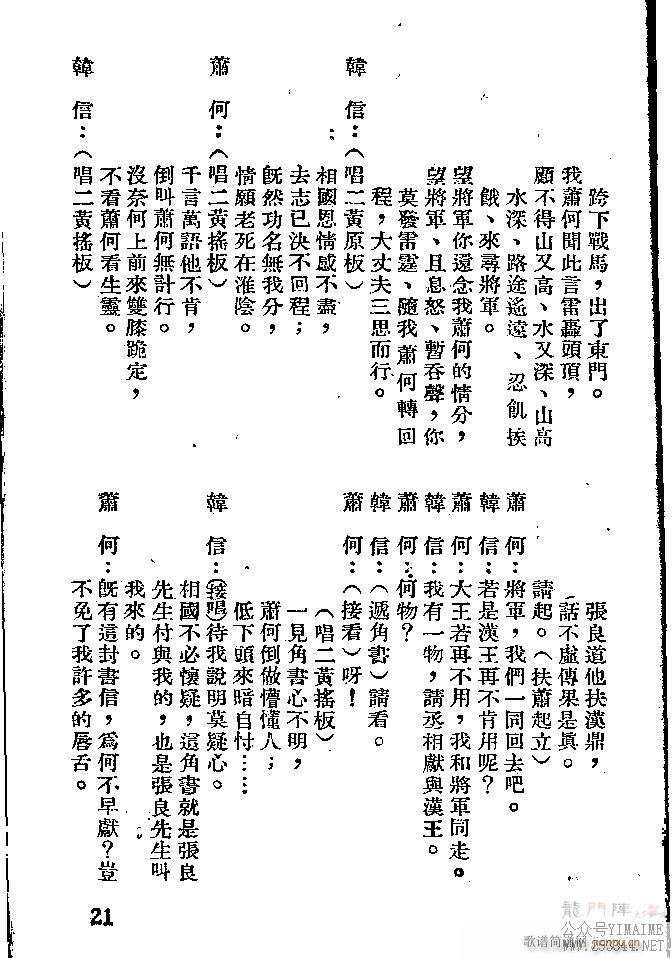 跨下戰馬，出了東門。
我蕭何聞此言雷轟頭頂，
顧不得山又高、水又深、山高
水深、路途遙遠、忍飢挨
餓、來尋將軍。
望將軍你還念我蕭何的情分，
望將軍、且息怒、暫吞聲，你
莫發雷霆、隨我蕭何轉回
程，大丈夫三思而行。
韓信：（唱二黃原板）
相國恩情感不盡，
去志已決不回程；
旣然功名無我分，
情願老死在淮陰。
蕭何：（唱二黃搖板）
千言萬語他不肯，
倒叫蕭何無計行。
沒奈何上前來雙膝跪定，
不看蕭何看生靈。
韓信：（唱二黃搖板）
張良道他扶漢鼎，
話不虛傳果是眞。
請起。（扶蕭起立）
蕭何：將軍，我們一同回去吧。
韓信：若是漢王再不肯用呢？
蕭何：大王若再不用，我和將軍同走。
韓信：我有一物，請丞相獻與漢王。
蕭何：何物？
韓信：（遞角書）請看。
蕭何：（接看）呀！
（唱二黃搖板）
一見角書心不明，
蕭何倒做懵懂人；
低下頭來暗自忖……
韓信：（接唱）待我說明莫疑心。
相國不必懷疑，這角書就是張良
先生付與我的，也是張良先生叫
我來的。
蕭何：旣有這封書信，爲何不早獻？豈
不免了我許多的唇舌。
21
龍門陣
公众号YIMAIME
歌谱简谱网